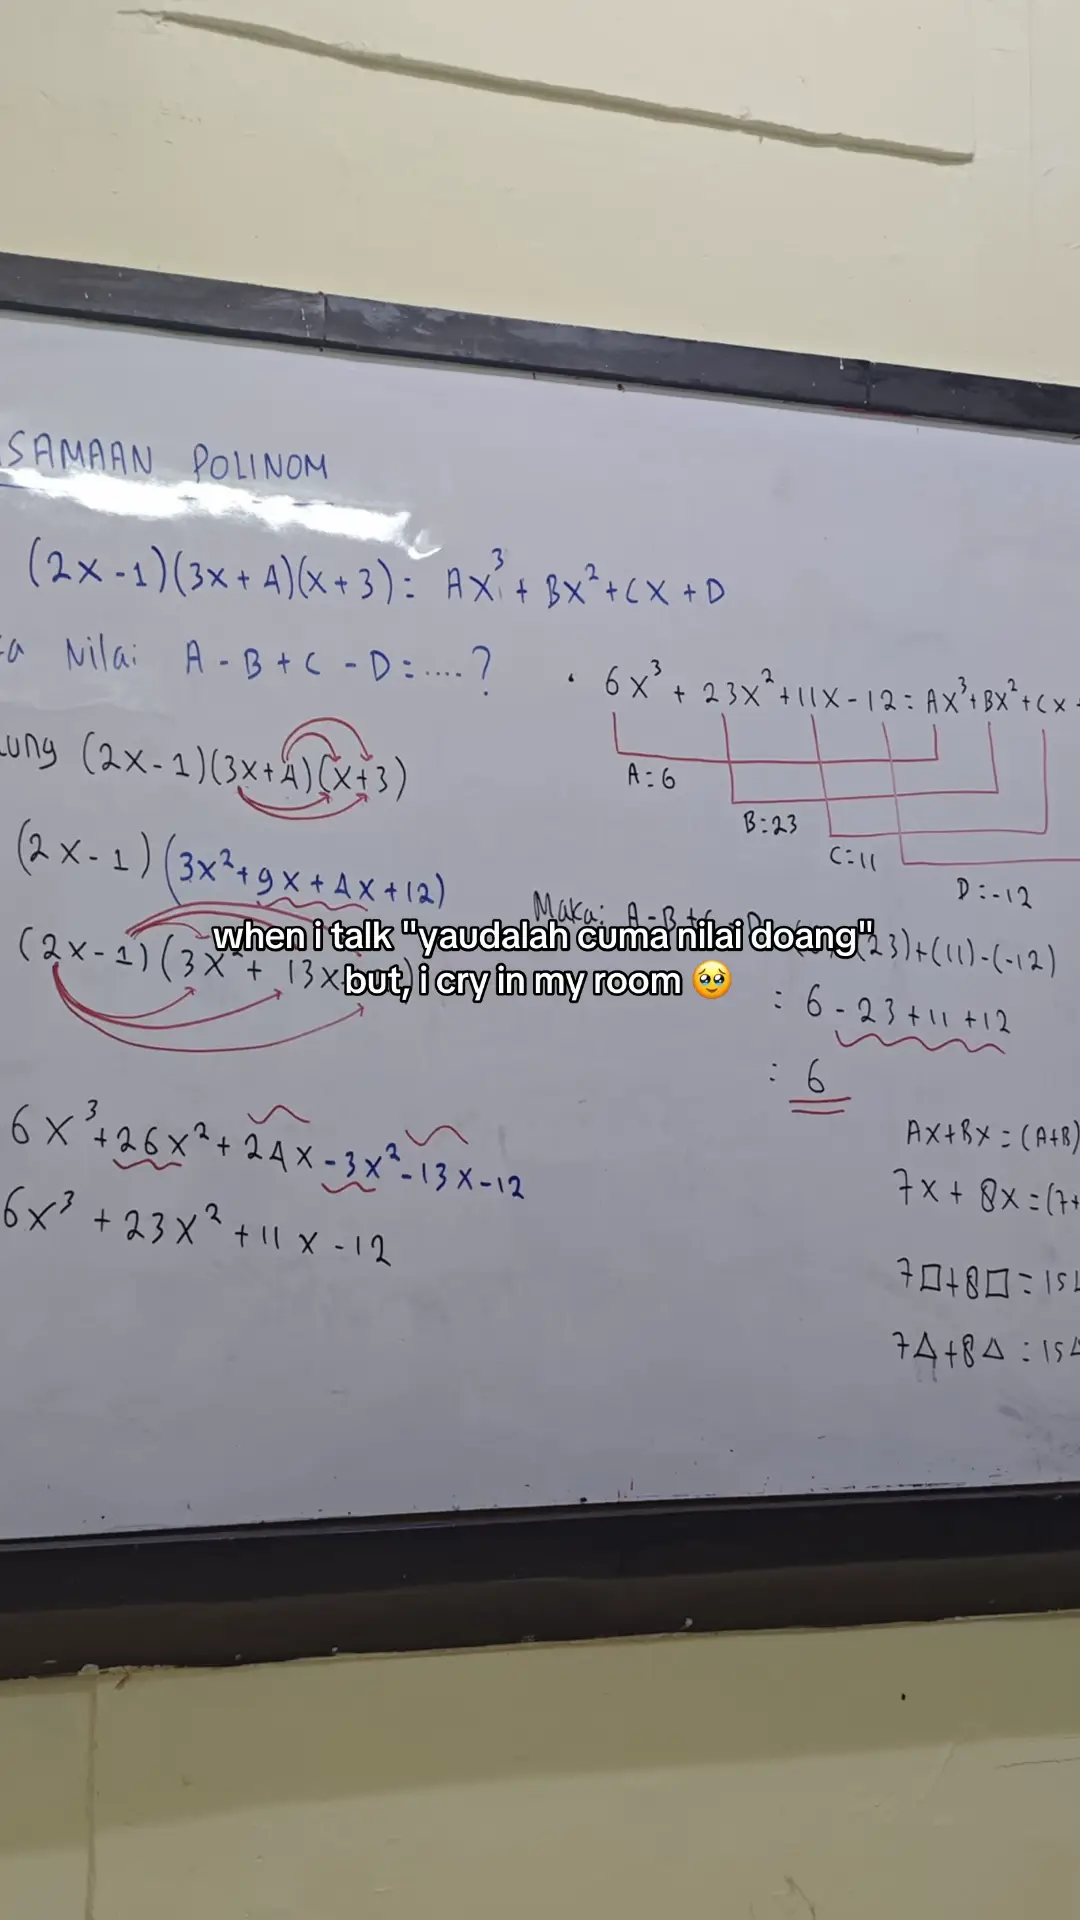 SAMAAN POLINOM
(2x-1)(3x+4)(x+3) = Ax³ + Bx² + Cx + D
Nilai A - B + C - D = ....?
(2x-1)(3x+4)(x+3)
(2x-1)(3x²+9x+4x+12)
(2x-1)(3x²+ 13x
6x³+26x²+24x-3x²-13x-12
6x³ + 23x² + 11x - 12
• 6x³ + 23x² + 11x - 12 = Ax³ + Bx² + Cx
A = 6
B = 23
C = 11
D = -12
Maka: A-B+C D 23)+(11)-(-12)
= 6 - 23 + 11 + 12
= 6
Ax+Bx = (A+B)
7x + 8x = (7+
7□+8□ = 15
7△+8△ = 15
when i talk "yaudalah cuma nilai doang"
but, i cry in my room 🥹